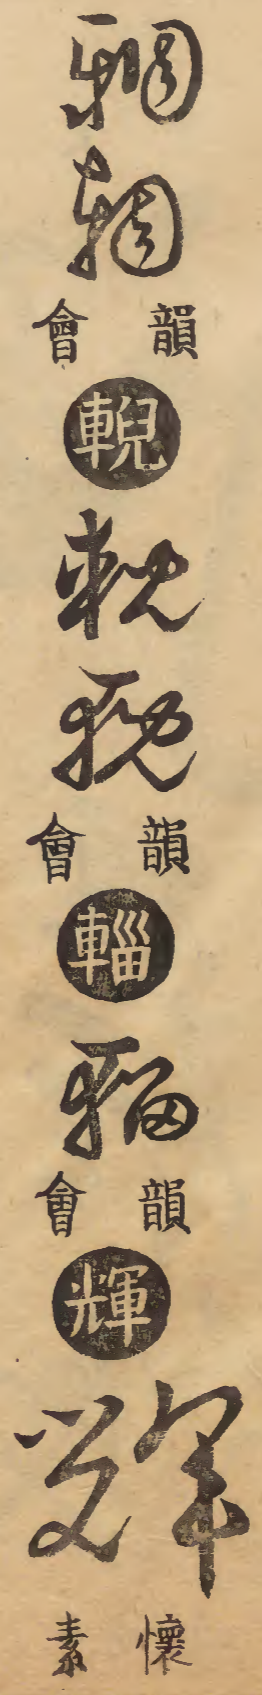 韻會
輗
輗
輗
韻會
輜
輜
韻會
輝
輝
懷素